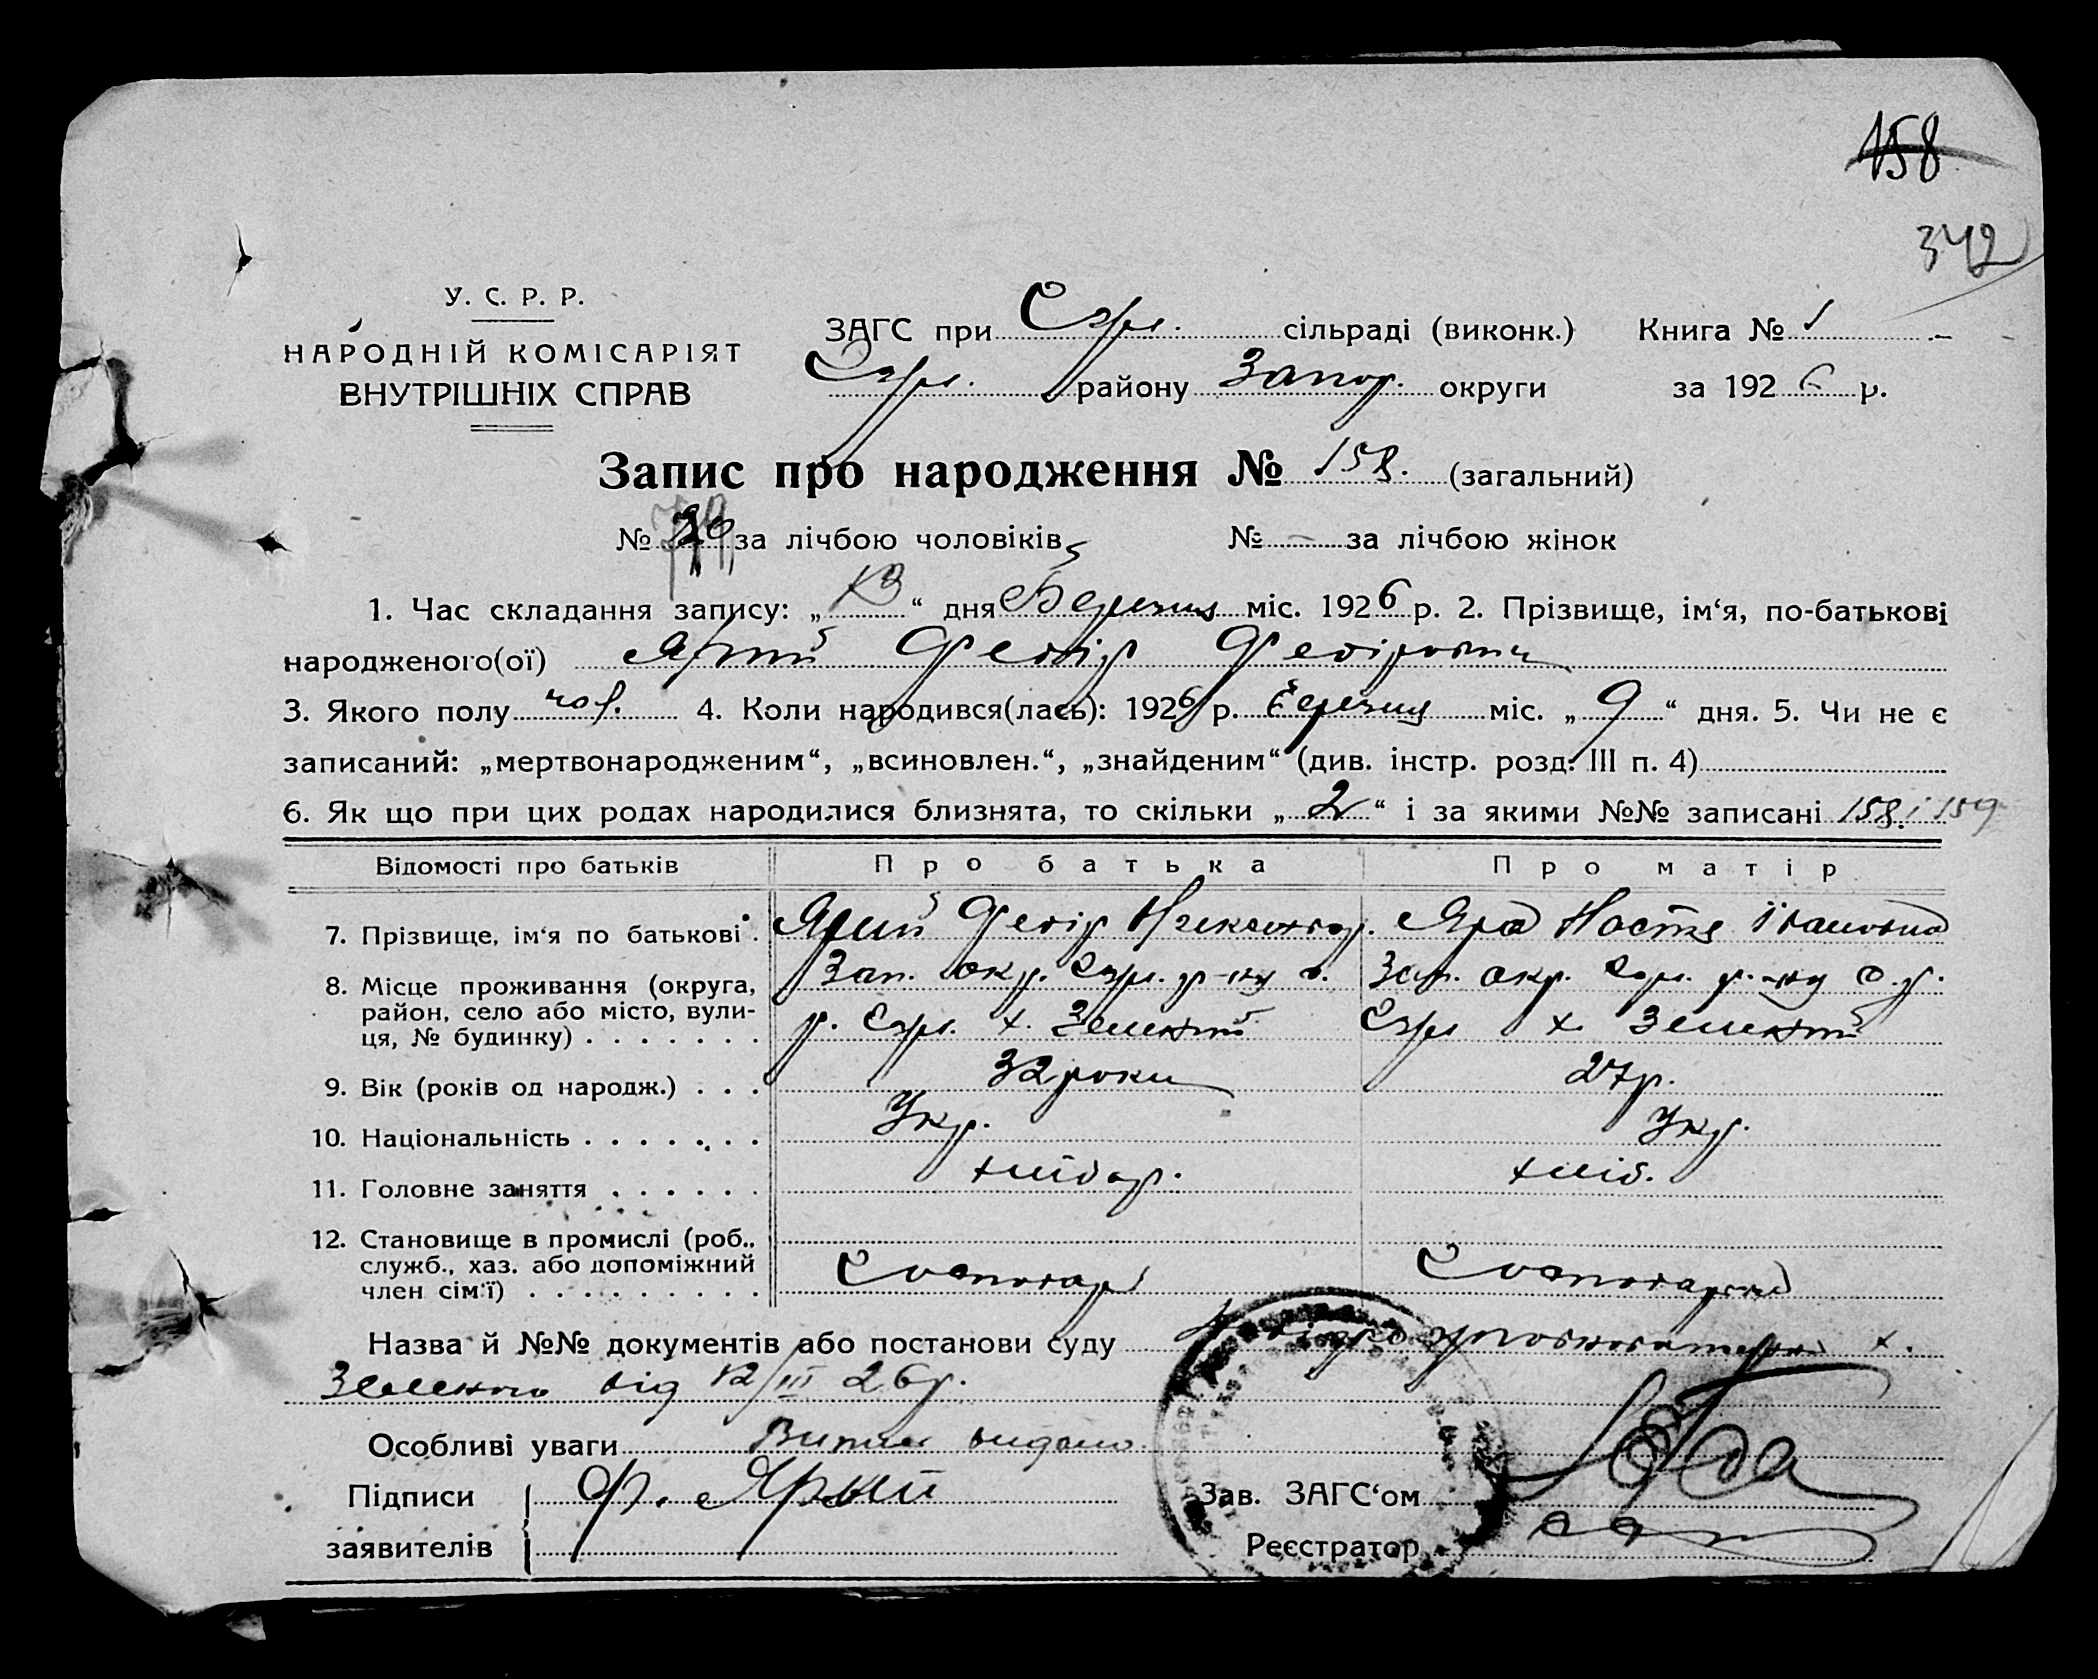 158
342
У. С. Р. Р.
НАРОДНІЙ КОМІСАРІЯТ
ВНУТРІШНІХ СПРАВ
ЗАГС при сільраді (виконк.) Книга № 1
району Запор. округи за 1926 р.
Запис про народження № 158. (загальний)
№ за лічбою чоловіків № - за лічбою жінок
1. Час складання запису: „ “ дня Березня міс. 1926 р. 2. Прізвище, ім‘я, по-батькові
народженого(ої) Ярий Федір Федірович
3. Якого полу чол. 4. Коли народився(лась): 1926 р. березня міс. „ 9 “ дня. 5. Чи не є
записаний: „мертвонародженим“, „всиновлен.“, „знайденим“ (див. інстр. розд. III п. 4)
6. Як що при цих родах народилися близнята, то скільки „ 2 “ і за якими №№ записані 158 і 159
Відомості про батьків Про батька Про матір
7. Прізвище, ім‘я по батькові . Ярий Федір Ярa Настя Івановна
8. Місце проживання (округа, Зап. окр. р-ну с. Зап. окр. р-ну с. р.
район, село або місто, вули- р. х. Зелений х. Зелений
ця, № будинку) . . . . . . .
9. Вік (років од народж.) . . . 32 роки 27 р.
10. Національність . . . . . . . Укр. Укр.
11. Головне заняття . . . . . . хлібор. хліб.
12. Становище в промислі (роб.,
служб., хаз. або допоміжний
член сім‘ї) . . . . . . . . . Господар
Назва й №№ документів або постанови суду х.
Зеленого від 12/III 26 р.
Особливі уваги Випис видано
Підписи Ф. Ярый Зав. ЗАГС‘ом
заявителів Реєстратор